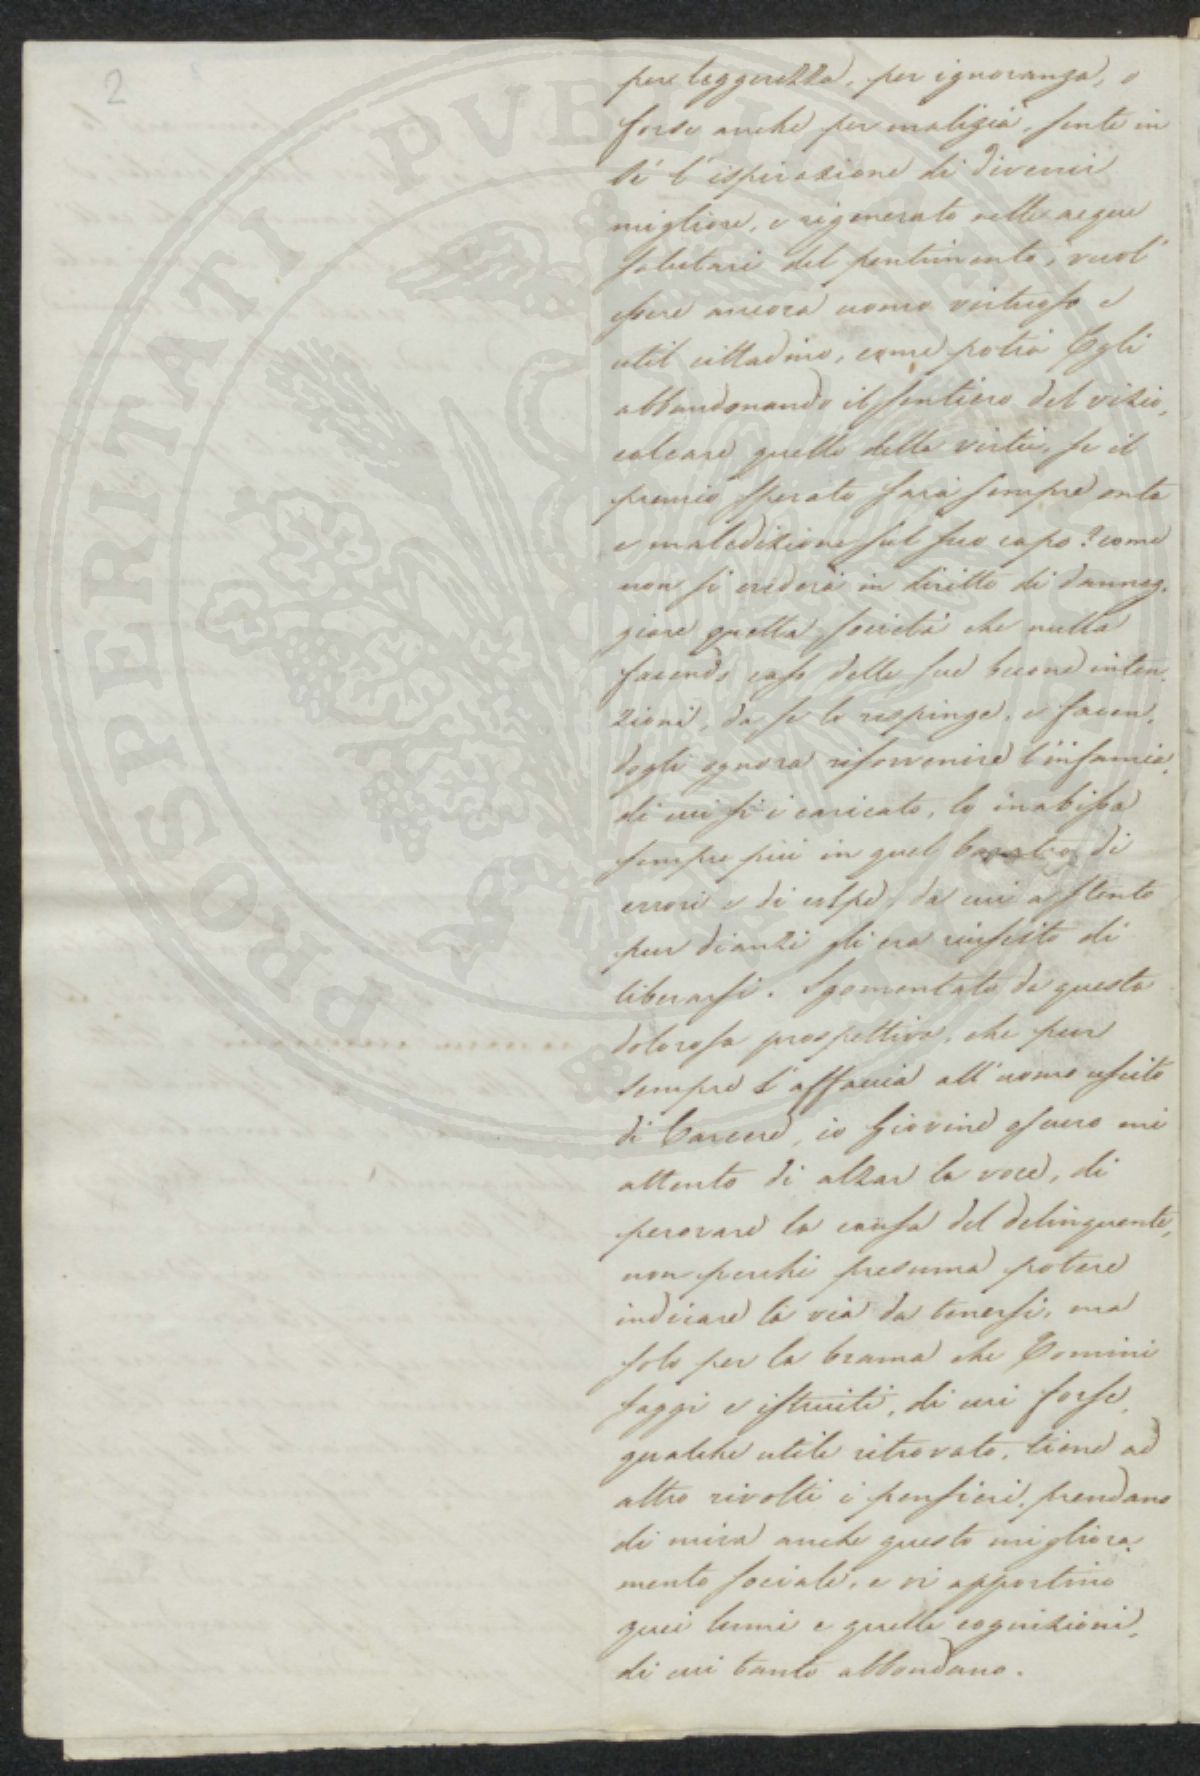 2
per leggerezza, per ignoranza, o
forse anche per malizia, sente in
sé l'ispirazione di divenir
migliore, e rigenerato nelle acque
salutari del pentimento, vuol'
essere ancora uomo virtuoso e
util cittadino, come potrà Egli
abbandonando il sentiero del vizio,
calcare quello della virtù, se il
premio sperato sarà sempre onta
e maledizione sul suo capo? come
non si crederà in diritto di danneg-
giare quella società che nulla
facendo caso delle sue buone inten-
zioni, da se lo respinge, e facen-
dogli ognora risovvenire l'infamia,
di cui si è caricato, lo inabissa
sempre più in quel baratro di
errori e di colpe, da cui a stento
pur dianzi gli era riuscito di
liberarsi. Sgomentato da questa
dolorosa prospettiva, che pur
sempre s'affaccia all'uomo uscito
di Carcere, io Giovine oscuro mi
attento di alzar la voce, di
perorare la causa del delinquente,
non perché presuma potere
indicare la via da tenersi, ma
solo per la brama che Uomini
saggi e istruiti, di cui forse,
qualche utile ritrovato, tiene ad
altro rivolti i pensieri, prendano
di mira anche questo migliora-
mento sociale, e vi apportino
quei lumi e quelle cognizioni,
di cui tanto abbondano.
PROSPERITATI PUBLICAE